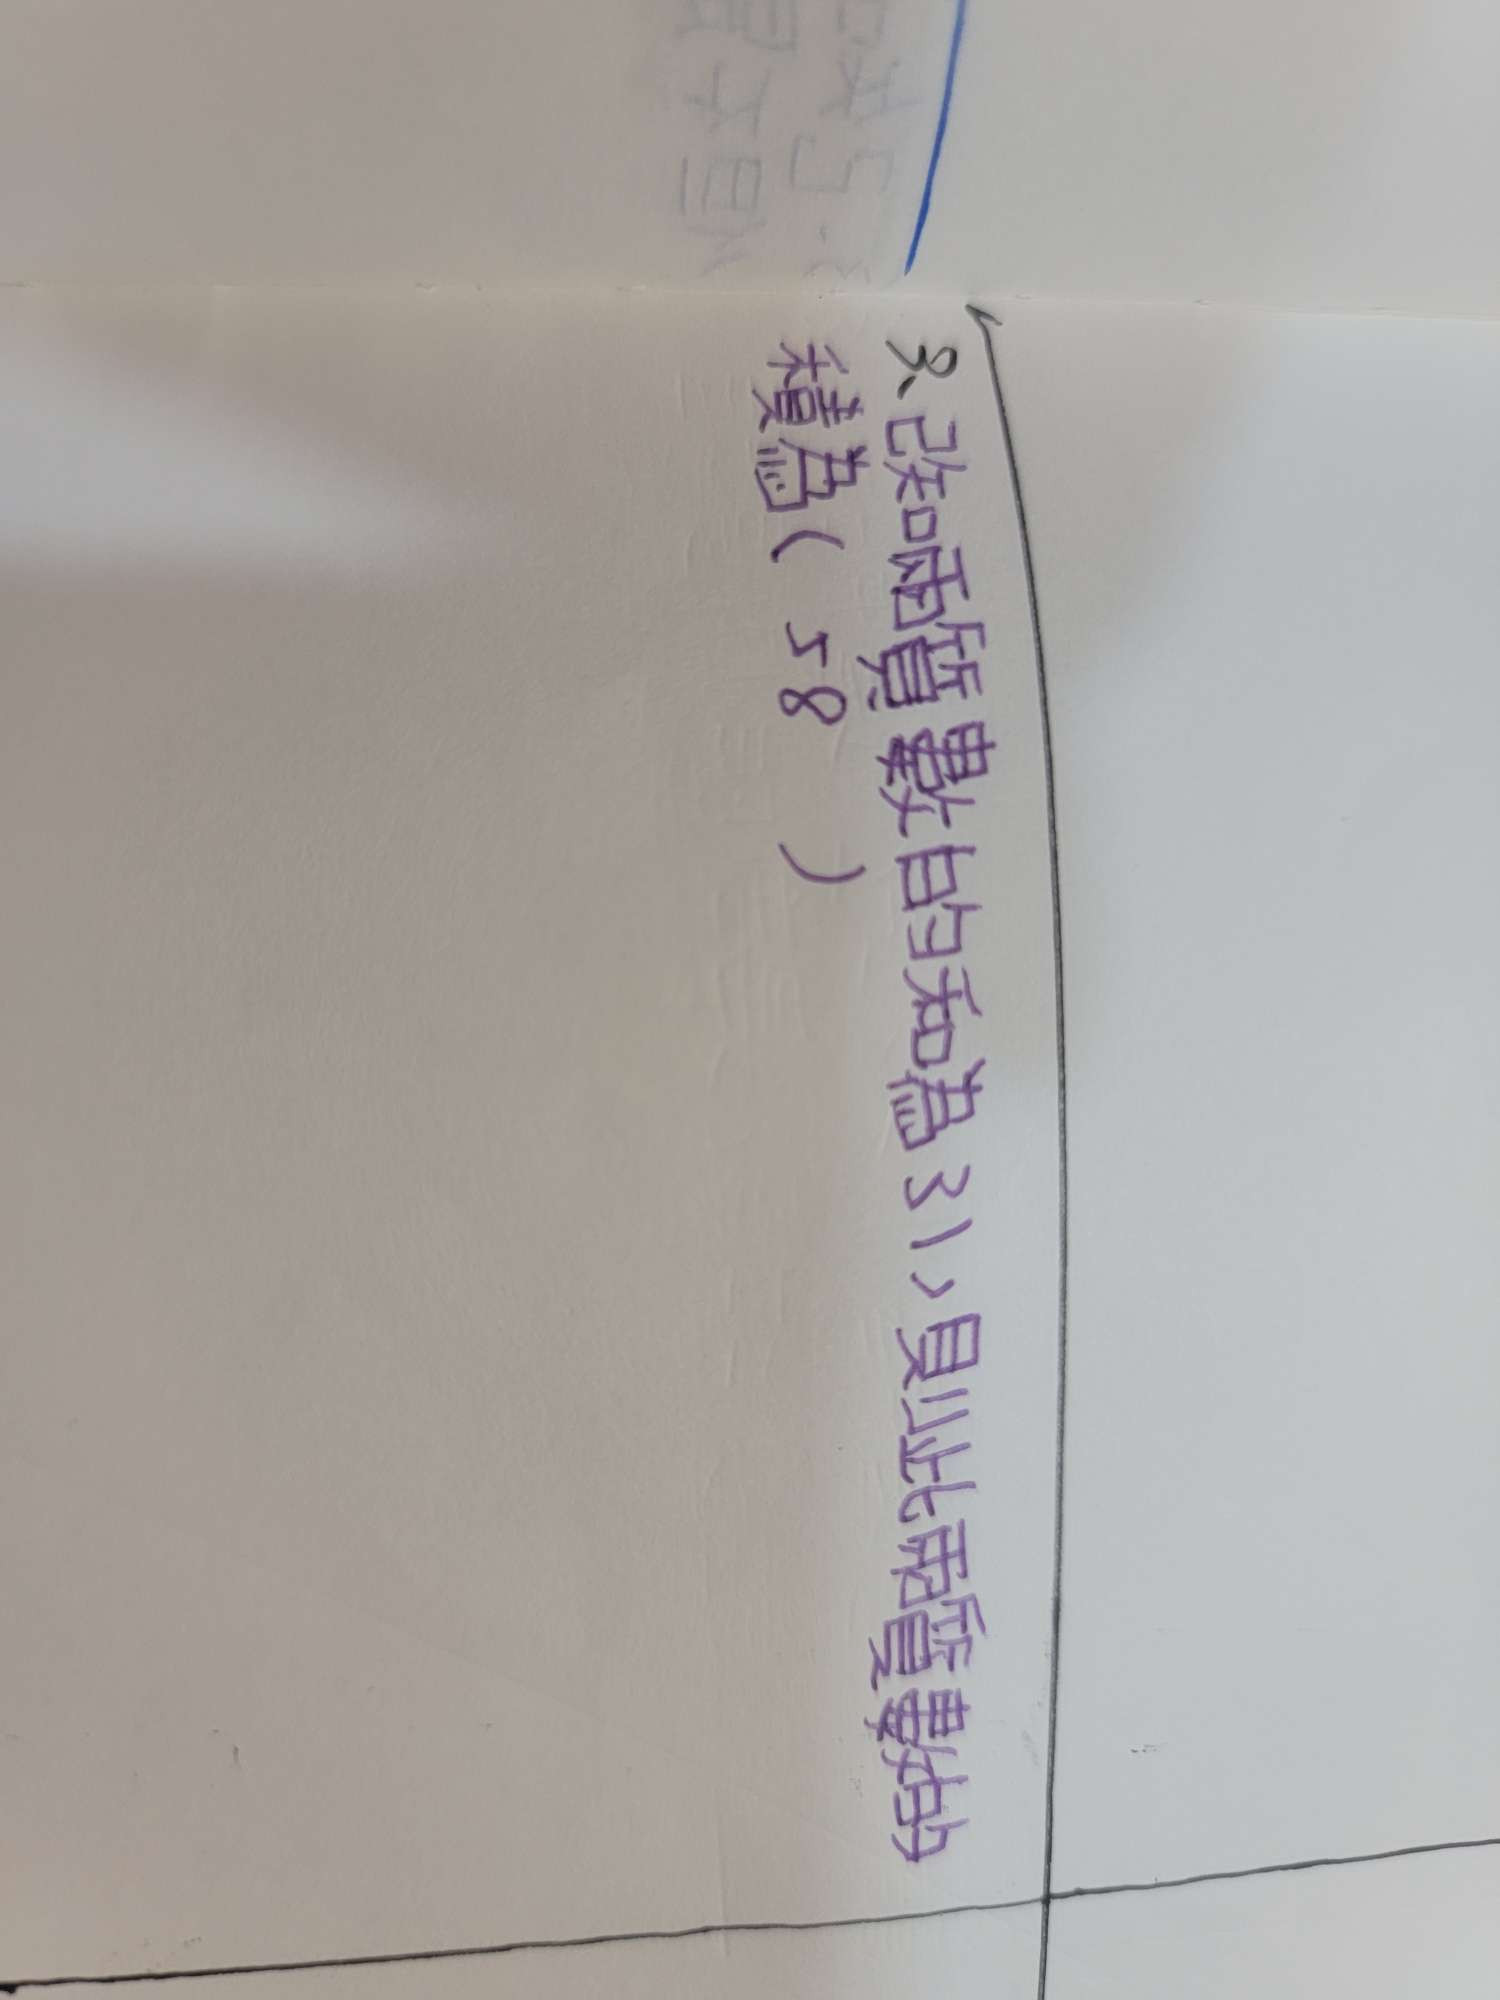 3、已知兩質數的和為31，則此兩質數的
積為( 58 )